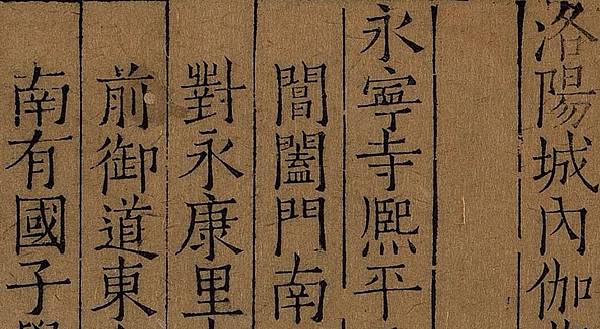 洛陽城內伽
永寧寺熙平
閶闔門南
對永康里
前御道東
南有國子學